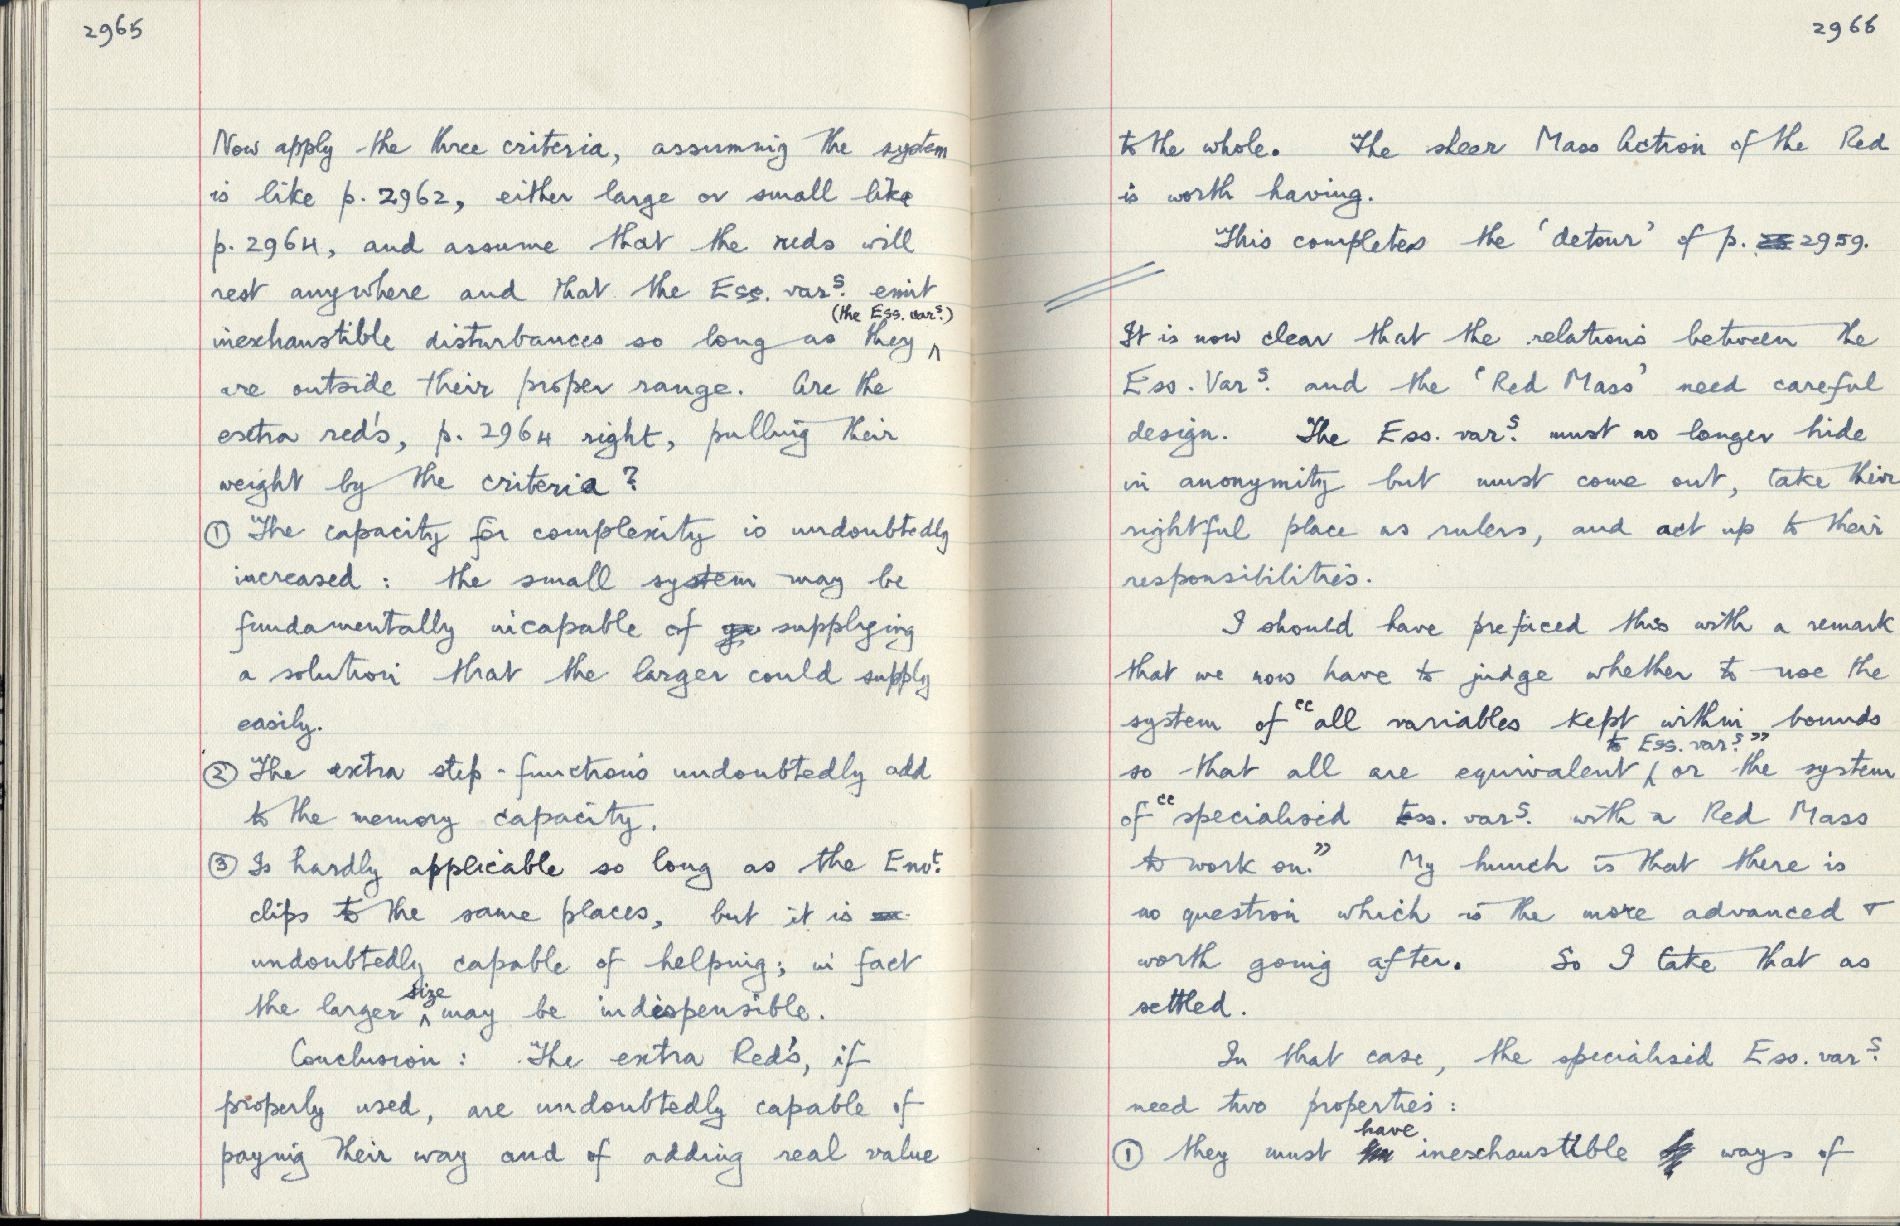 2965
Now apply the three criteria, assuming the system
is like p. 2962, either large or small like
p. 2964, and assume that the reds will
rest anywhere and that the Ess. varˢ. emit
(the Ess. varˢ.)
inexhaustible disturbances so long as they ∧
are outside their proper range. Are the
extra red's, p. 2964 right, pulling their
weight by the criteria?
① The capacity for complexity is undoubtedly
increased : the small system may be
fundamentally incapable of supplying
a solution that the larger could supply
easily.
② The extra step-functions undoubtedly add
to the memory capacity.
③ Is hardly applicable so long as the Envᵗ.
clips to the same places, but it is
undoubtedly capable of helping; in fact
size
the larger ∧ may be indispensible.
Conclusion : The extra Red's, if
properly used, are undoubtedly capable of
paying their way and of adding real value
2966
to the whole. The sheer Mass Action of the Red
is worth having.
This completes the 'detour' of p. 2959.
It is now clear that the relations between the
Ess. Varˢ. and the 'Red Mass' need careful
design. The Ess. varˢ. must no longer hide
in anonymity but must come out, take their
rightful place as rulers, and act up to their
responsibilities.
I should have prefaced this with a remark
that we now have to judge whether to use the
system of "all variables kept within bounds
to Ess. varˢ."
so that all are equivalent ∧ or the system
of "specialised Ess. varˢ. with a Red Mass
to work on." My hunch is that there is
no question which is the more advanced +
worth going after. So I take that as
settled.
In that case, the specialised Ess. varˢ.
need two properties :
have
① they must inexhaustible ways of